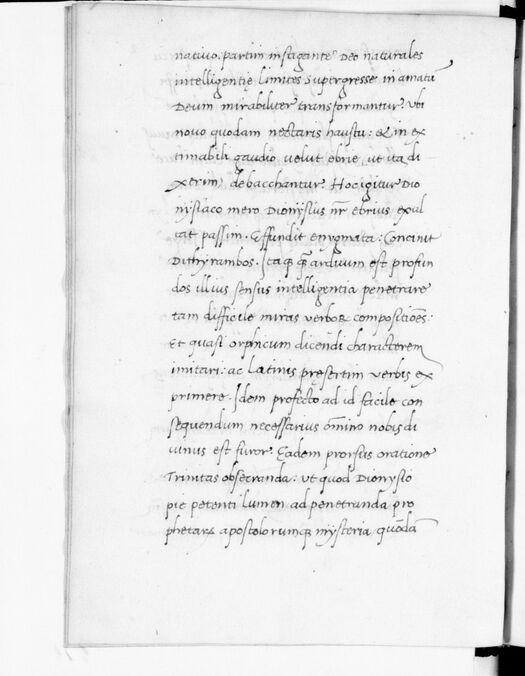 natiuo. partim instigante Deo naturales
intelligentię limites supergresse in amatū
Deum mirabiliter transformantur. Vbi
nouo quodam nectaris haustu: & in ex
timabili gaudio velut ebrie, vt ita di
xerim, debacchantur. Hoc igitur Dio
nysiaco mero Dionysius nr̄ ebrius exul
tat passim. Effundit enygmata: Concinit
Dithyrambos. Itaq; q̄ arduum est profun
dos illius sensus intelligentia penetrare
tam difficile miras verboꝝ compositiões:
Et quasi orphicum dicendi characterem
imitari: ac Latinis pręsertim verbis ex
primere. Idem profecto ad id facile con
sequendum necessarius õmino nobis di
uinus est furor. Eadem prorsus oratione
Trinitas obsecranda: vt quod Dionysio
pie petenti lumen ad penetranda pro
phetaꝝ apostolorumq; mysteria quõdā